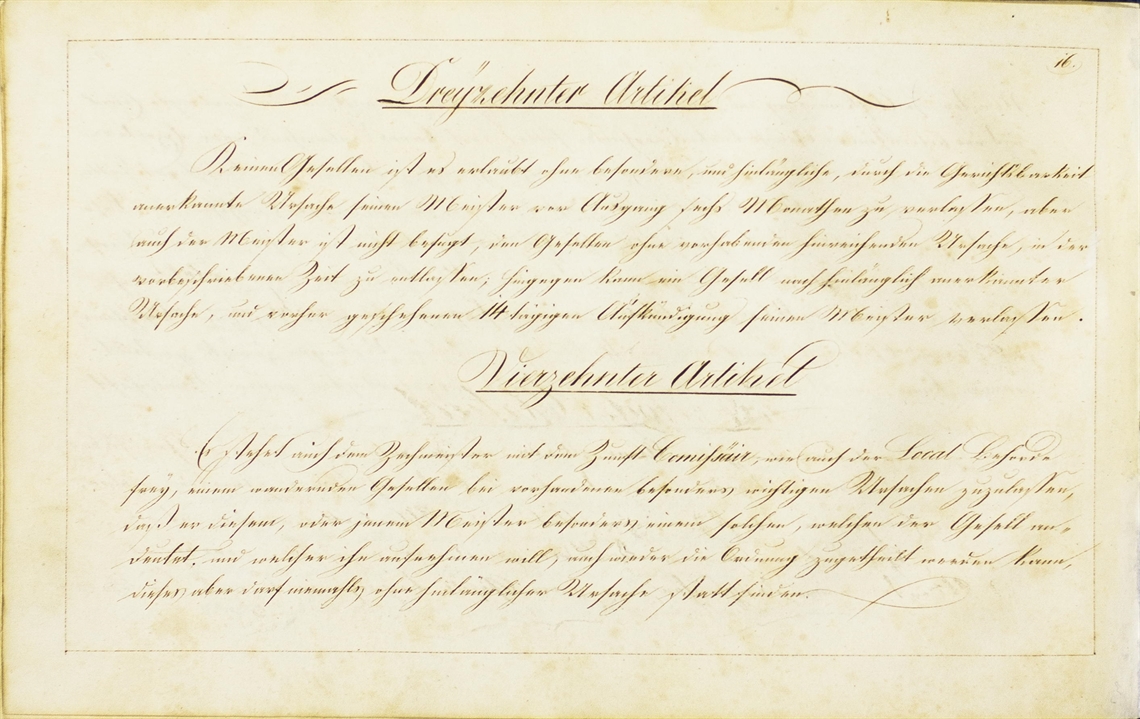 16.
Dreÿzehnter Artikel
Keinen Gesellen ist es erlaubt ohne besondere, und hinlängliche, durch die Gerichtsbarkeit
anerkannte Ursache seinen Meister vor Ausgang sechs Monathen zu verlassen, aber
auch der Meister ist nicht befugt, den Gesellen ohne vorhabenden hinreichenden Ursache, in der
vorbeschriebenen Zeit zu entlassen; hingegen kann ein Gesell nach hinlänglich anerkannter
Ursache, und vorher geschehenen 14 tägigen Aufkündigung seinen Meister verlassen.
Vierzehnter Artikel
Es stehet auch dem Zechmeister mit dem Zunft Comissäir, wie auch der Local Behörde
frey, einem wandernden Gesellen bei vorhandenen besonders wichtigen Ursachen zuzulassen,
daß er diesem, oder jenem Meister besonders einem solchen, welchen der Gesell an=
deutet. und welcher ihn aufnehmen will, auch wieder die Ordnung zugetheilt werden kann,
dieses aber darf niemahls ohne hinlänglicher Ursache statt finden.